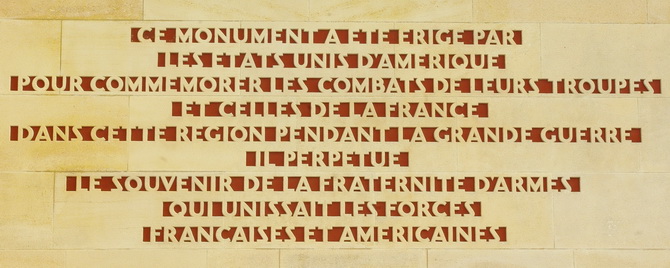 CE MONUMENT A ETE ERIGE PAR
LES ETATS UNIS D'AMERIQUE
POUR COMMEMORER LES COMBATS DE LEURS TROUPES
ET CELLES DE LA FRANCE
DANS CETTE REGION PENDANT LA GRANDE GUERRE
IL PERPETUE
LE SOUVENIR DE LA FRATERNITE D'ARMES
QUI UNISSAIT LES FORCES
FRANCAISES ET AMERICAINES